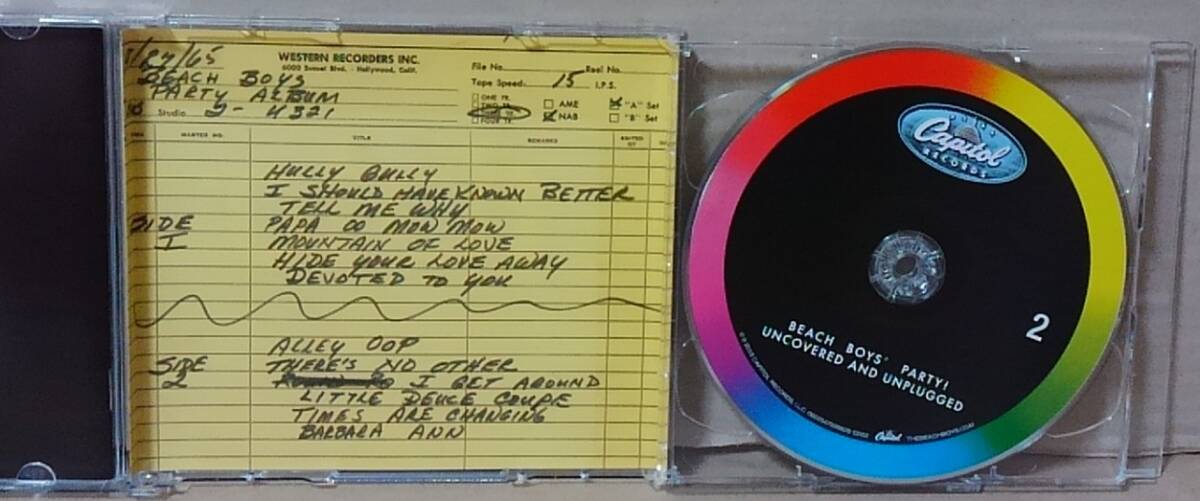 /27/65
WESTERN RECORDERS INC.
6000 Sunset Blvd. - Hollywood, Calif.
BEACH BOYS
PARTY ALBUM
Studio 2- 4321
File No. Reel No.
Tape Speed: 15 I.P.S.
ONE TR.
TWO TR.
FOUR TR.
AME
NAB
"A" Set
"B" Set
MASTER NO. TITLE REMARKS
HULLY GULLY
I SHOULD HAVE KNOWN BETTER
TELL ME WHY
SIDE PAPA OO MOW MOW
I MOUNTAIN OF LOVE
HIDE YOUR LOVE AWAY
DEVOTED TO YOU
ALLEY OOP
SIDE THERE'S NO OTHER
2 I GET AROUND
LITTLE DEUCE COUPE
TIMES ARE CHANGING
BARBARA ANN
Capitol
RECORDS
2
BEACH BOYS' PARTY!
UNCOVERED AND UNPLUGGED
CAPITOL RECORDS, LLC.
Capitol
THEBEACHBOYS.COM